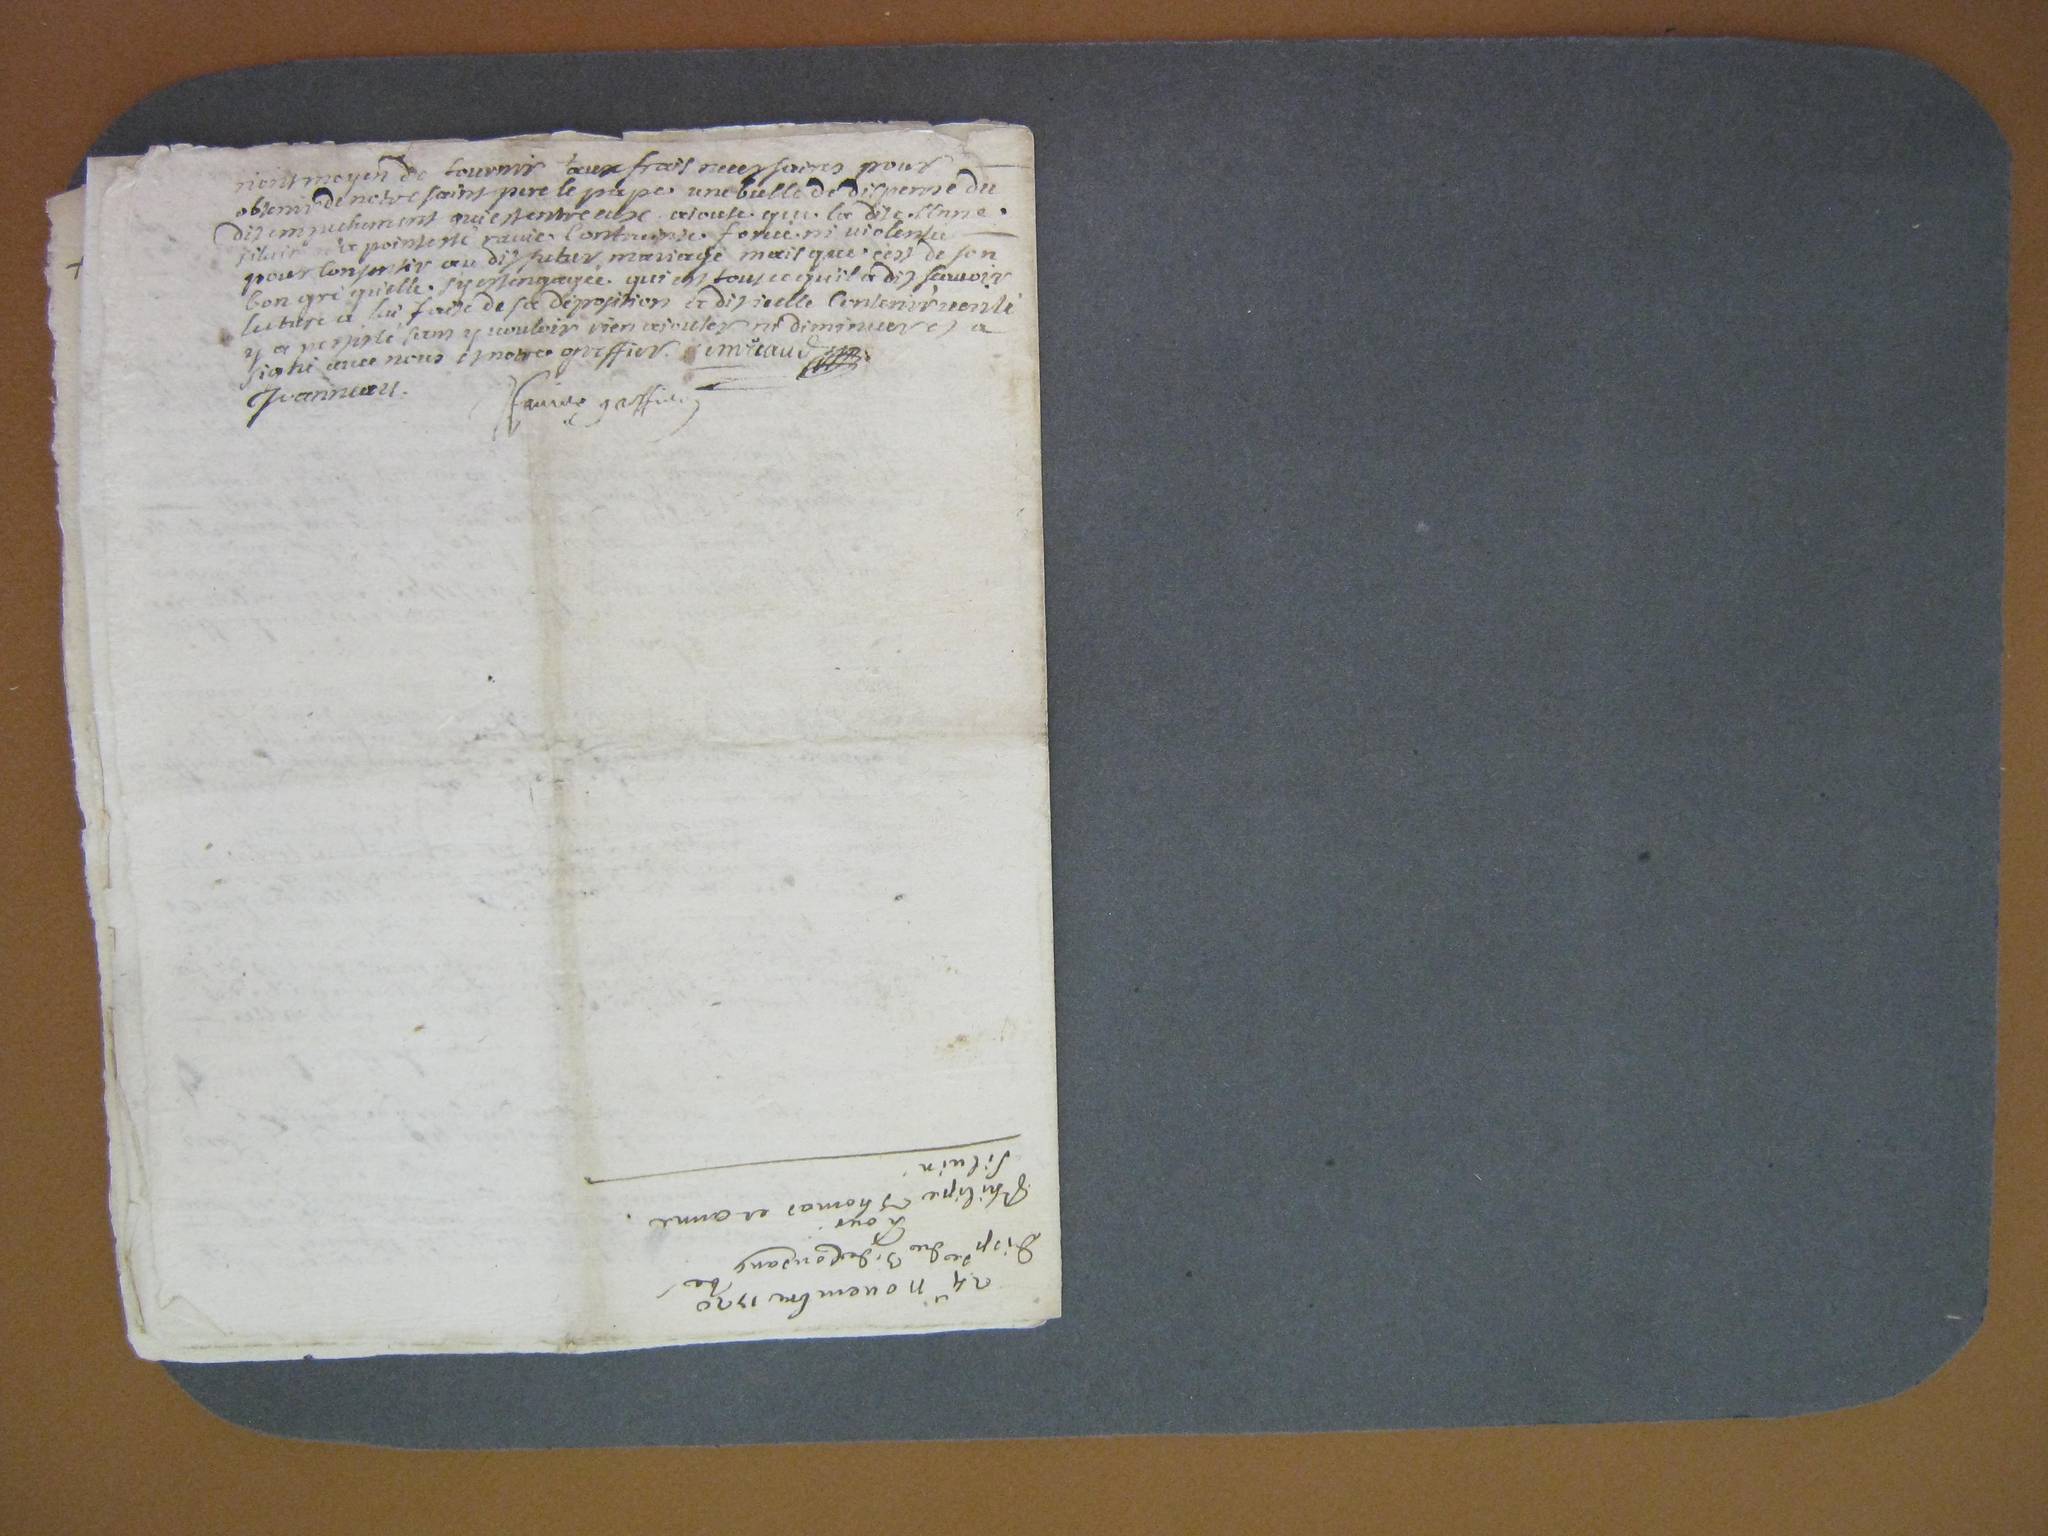 nient moyen de fournir aux frais necessaires pour
obtenir de notre saint pere le pape une bulle de dispense du
dit empechement qui est entre eux. aioute que la dite Anne
siluin n'a point esté rauie contrainte forcée ni uiolentée
pour consentir au dit futur mariage mais que c'est de son
bon gré qu'elle s'y est engagée. qui est tout ce qu'il a dit scauoir
lecture a lui faite de sa deposition a dit icelle contenir uerité
y a persisté sans y uouloir rien aiouter ni diminuer et a
signé auec nous et notre greffier.
Jvanneau. greffier
24e nouembre 1720
disp de du 3. de
Philipe Thomas et anne
siluin